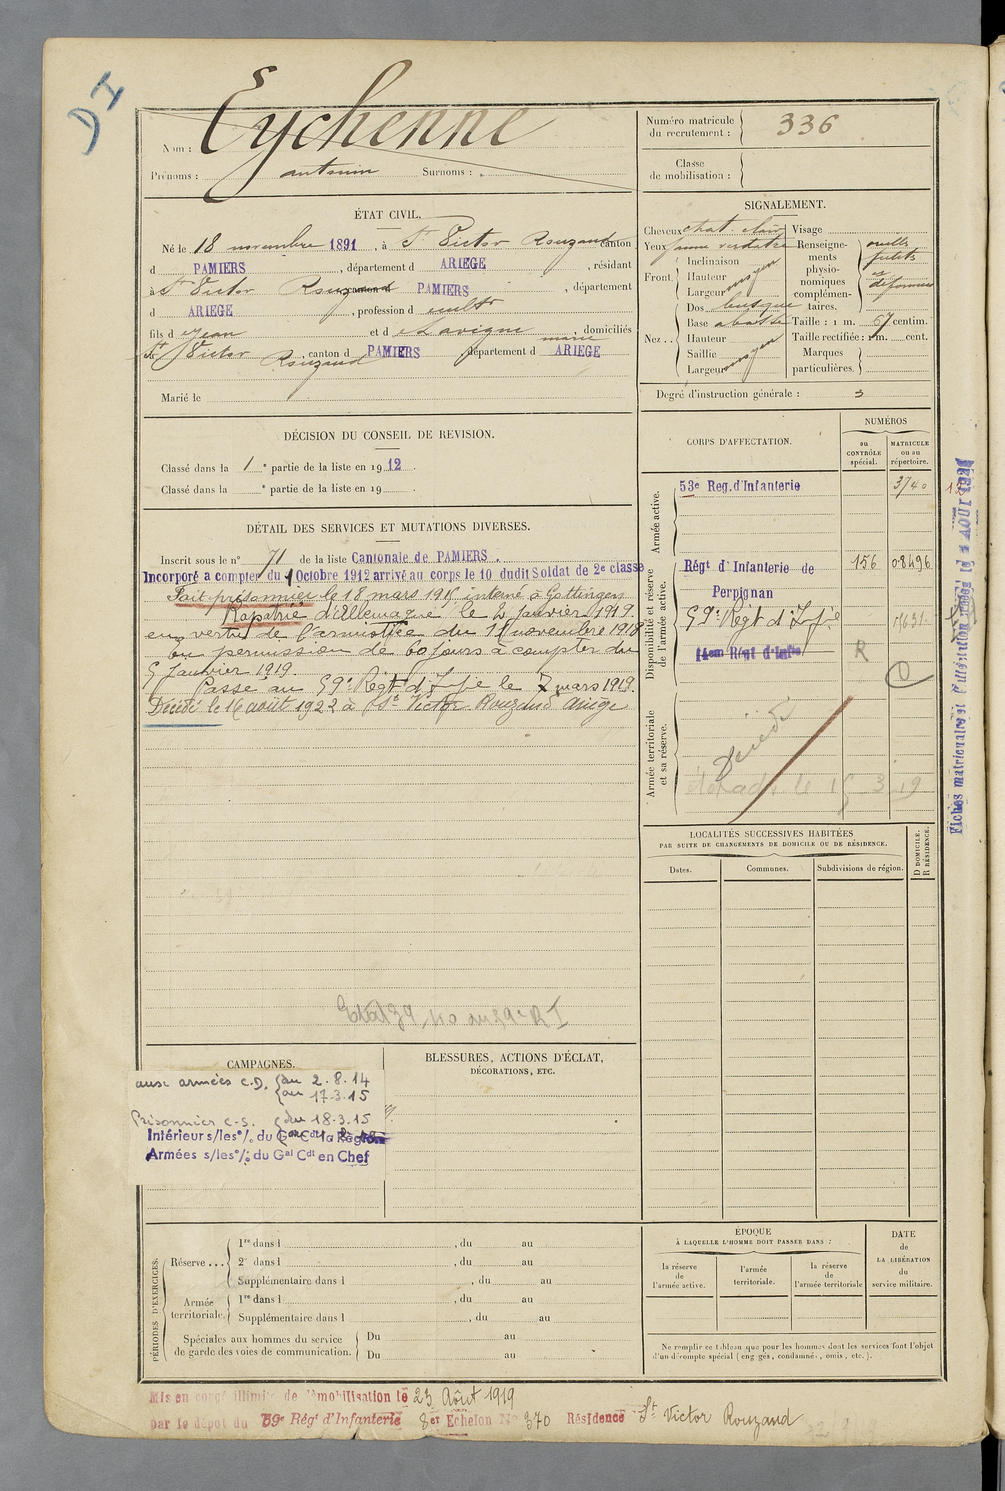 DI
Nom : Eychenne
Prénoms : antonin Surnoms :
Numéro matricule du recrutement : 336
Classe de mobilisation :
ÉTAT CIVIL.
Né le 18 novembre 1891, à St Victor Rouzaud canton
d PAMIERS, département d ARIEGE, résidant
à St Victor Rouzaud canton d PAMIERS, département
d ARIEGE, profession de cultr
fils d e Jean et d e Lavigne marie, domiciliés
à St Victor Rouzaud, canton d PAMIERS département d ARIEGE
Marié le
SIGNALEMENT.
Cheveux chat. clair
Yeux jaune verdatre
Front. Inclinaison
Hauteur
Largeur moyen
Nez... Dos busqué
Base abattu
Hauteur
Saillie
Largeur moyen
Visage
Renseignements physionomiques complémentaires.
oreilles petites
Taille : 1 m. 67 centim.
Taille rectifiée : 1 m. cent.
Marques particulières.
Degré d'instruction générale : 3
DÉCISION DU CONSEIL DE REVISION.
Classé dans la 1e partie de la liste en 1912.
Classé dans la e partie de la liste en 19 .
DÉTAIL DES SERVICES ET MUTATIONS DIVERSES.
Inscrit sous le n° 71 de la liste Cantonale de PAMIERS.
Incorporé a compter du 1 Octobre 1912 arrivé au corps le 10 dudit Soldat de 2e classe
Fait prisonnier le 18 mars 1915 interné à Gottingen
Rapatrié d'Allemagne le 2 Janvier 1919.
en vertu de l'armistice du 11 novembre 1918
en permission de 60 jours à compter du
5 Janvier 1919.
Passé au 59e Régt d'Infie le 7 mars 1919.
Décédé le 16 août 1922 à St Victor Rouzaud Ariège
CORPS D'AFFECTATION.
NUMÉROS
au CONTRÔLE spécial.
MATRICULE ou au répertoire.
Armée active.
53e Reg. d'Infanterie 3740
Disponibilité et réserve de l'armée active.
Régt d'Infanterie de Perpignan 156 08496
59e Régt d'Infie
14em Régt d'Infie R
Armée territoriale et sa réserve.
Décédé
le 15 3 19
Fiches matriculaires
LOCALITÉS SUCCESSIVES HABITÉES
PAR SUITE DE CHANGEMENTS DE DOMICILE OU DE RÉSIDENCE.
Dates.
Communes.
Subdivisions de région.
D DOMICILE. R RÉSIDENCE.
CAMPAGNES.
aux armées C.D. du 2.8.14
au 17.3.15
Prisonnier C.S. du 18.3.15
Intérieur s/les °/. du Gal Cdt la Région
Armées s/les °/. du Gal Cdt en Chef
BLESSURES, ACTIONS D'ÉCLAT,
DÉCORATIONS, ETC.
PÉRIODES D'EXERCICES.
Réserve ... 1re dans l , du au
2e dans l , du au
Supplémentaire dans l , du au
Armée territoriale. 1re dans l , du au
Supplémentaire dans l , du au
Spéciales aux hommes du service de garde des voies de communication. Du au
Du au
ÉPOQUE
À LAQUELLE L'HOMME DOIT PASSER DANS :
la réserve de l'armée active.
l'armée territoriale.
la réserve de l'armée territoriale
DATE de LA LIBÉRATION du service militaire.
Ne remplir ce tableau que pour les hommes dont les services font l'objet
d'un décompte spécial (engagés, condamnés, omis, etc.).
Mis en congé illimité de démobilisation le 23 Août 1919
par le dépôt du 59e Régt d'Infanterie 8er Echelon No 370 Résidence St Victor Rouzaud